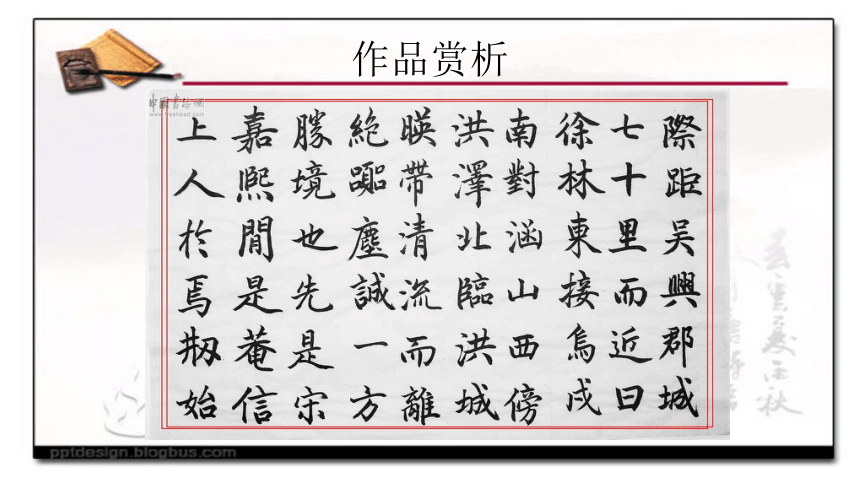 作品赏析
際距吴興郡城
七十里而近曰
徐林東接烏戍
南對涵山西傍
洪澤北臨洪城
暎帶清流而離
絶囂塵誠一方
勝境也先是宋
嘉熙間是菴信
上人於焉剏始
pptdesign.blogbus.com